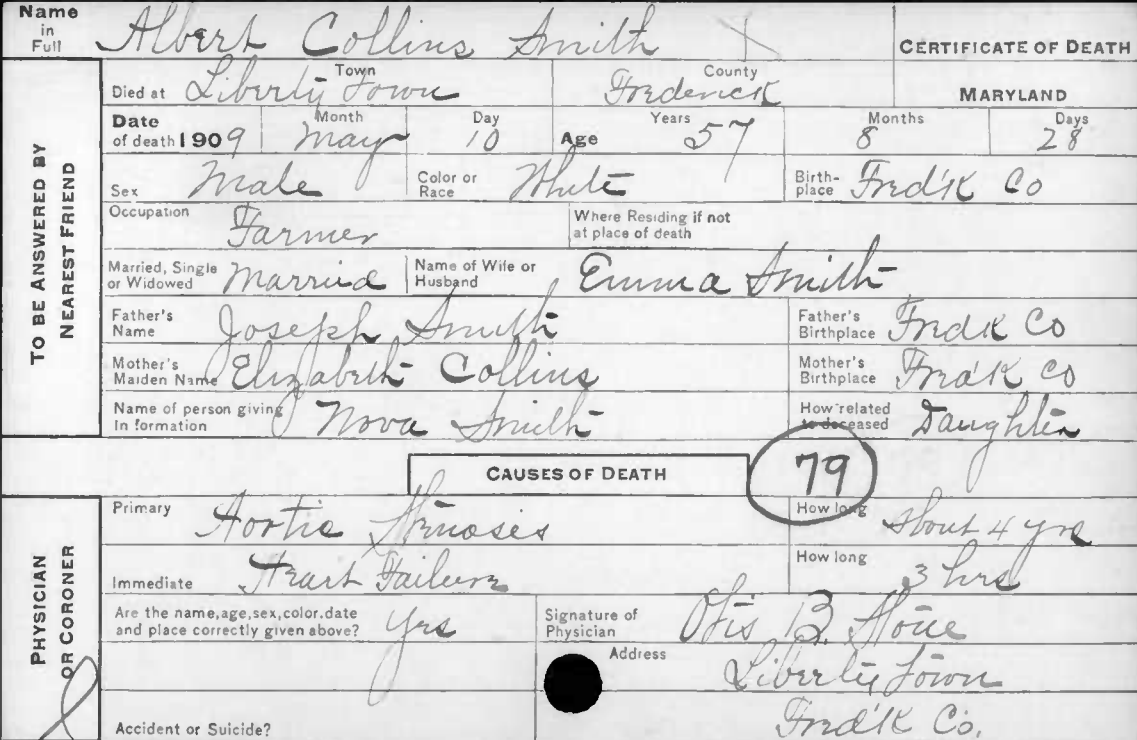 Name in Full Albert Collins Smith X CERTIFICATE OF DEATH
TO BE ANSWERED BY NEAREST FRIEND
Died at Liberty Town Town Frederick County MARYLAND
Date of death 1909 Month May Day 10 Age Years 57 Months 8 Days 28
Sex Male Color or Race White Birth-place Fred'k Co
Occupation Farmer Where Residing if not at place of death
Married, Single or Widowed Married Name of Wife or Husband Emma Smith
Father's Name Joseph Smith Father's Birthplace Fredk Co
Mother's Maiden Name Elizabeth Collins Mother's Birthplace Fred'k Co
Name of person giving In formation Nova Smith How related to deceased Daughter
CAUSES OF DEATH 79
PHYSICIAN OR CORONER
Primary Aortic Stenosis How long about 4 yrs
Immediate Heart Failure How long 3 hrs
Are the name,age,sex,color.date and place correctly given above? yes Signature of Physician Otis B. Stone
Address Liberty Town
Accident or Suicide? Fred'k Co.